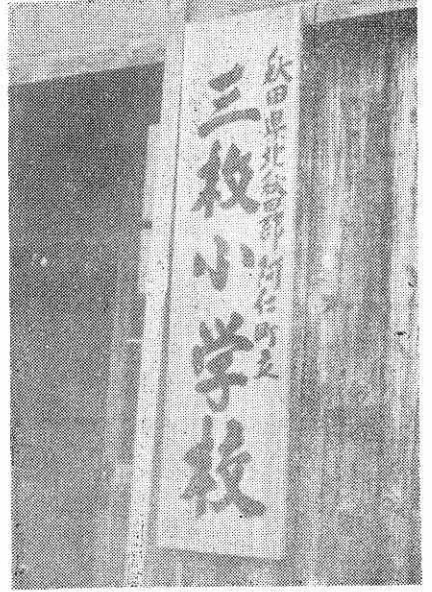 秋田県北秋田郡阿仁町立
三枚小学校